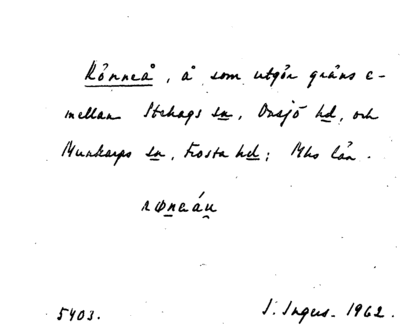 Rönneå, å som utgör gräns e-
mellan Stehags sn, Onsjö hd, och
Munkarps sn, Frosta hd; Mhs län.
5403. S. Ingers. 1962.